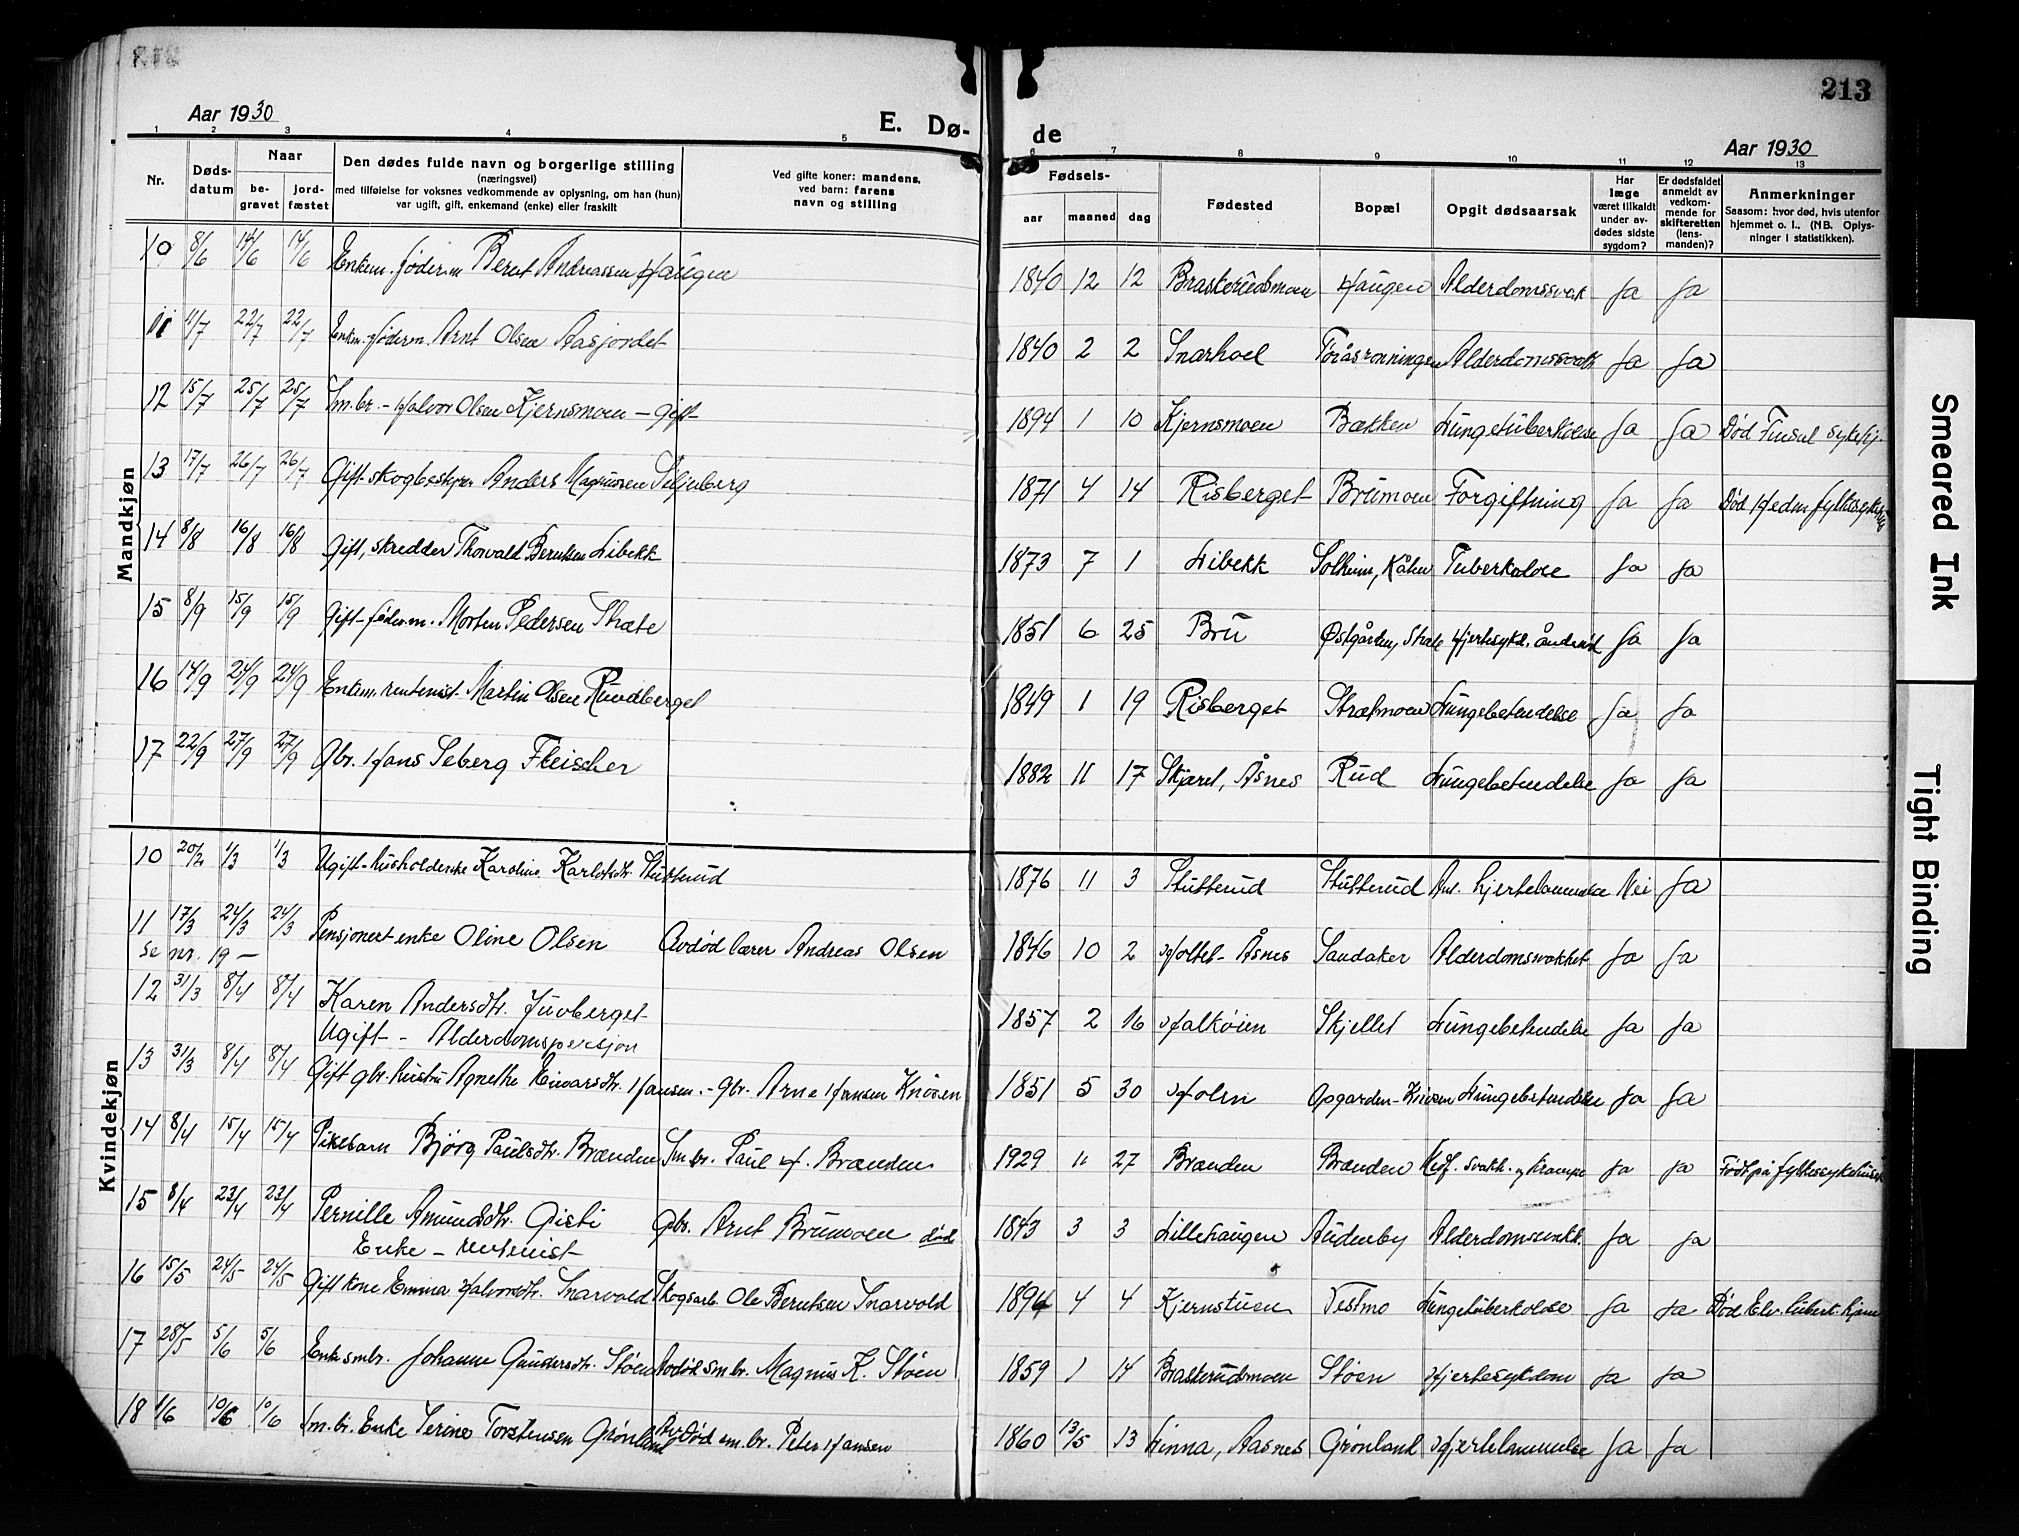 213
Aar 1930
E. Dø-
de
Aar 1930
1 2 3 4 5 6 7 8 9 10 11 12 13
Nr.
Døds-
datum
Naar
be-
gravet
jord-
fæstet
Den dødes fulde navn og borgerlige stilling
(næringsvei)
med tilføielse for voksnes vedkommende av oplysning, om han (hun)
var ugift, gift, enkemand (enke) eller fraskilt
Ved gifte koner: mandens,
ved barn: farens
navn og stilling
Fødsels-
aar maaned dag
Fødested
Bopæl
Opgit dødsaarsak
Har
læge
været tilkaldt
under av-
dødes sidste
sygdom?
Er dødsfaldet
anmeldt av
vedkom-
mende for
skifteretten
(lens-
manden)?
Anmerkninger
Saasom: hvor død, hvis utenfor
hjemmet o. l.. (NB. Oplys-
ninger i statistikken).
Mandkjøn
10 8/6 14/6 14/6 Enkem. føderm Bernt Andreassen Haugen 1840 12 12 Braskerudsmoen Haugen Alderdomssvak Ja Ja
11 11/7 22/7 22/7 Enkem. føderm. Arnt Olsen Aasjordet 1840 2 2 Snarhoel Alderdomssvakh Ja Ja
12 15/7 25/7 25/7 Sm.br. - Halvor Olsen Kjernsmoen - gift 1894 1 10 Kjernsmoen Bækken Lungetuberkolose Ja Ja Død Sykehj.
13 17/7 26/7 26/7 Gift skogbestyrer Anders Magnussen Seljeberg 1871 4 14 Risberget Brumoen Forgiftning Ja Ja Død Hedm fylkessykehus
14 8/8 16/8 16/8 Gift, skredder Thorvald Berntsen Libekk 1873 7 1 Libekk Solheim, Kåten Tuberkolose Ja Ja
15 8/9 15/9 15/9 Gift føderm. Morten Pedersen Strate 1851 6 25 Bru Østgården, Hjertesykd. åndenød Ja Ja
16 14/9 24/9 24/9 Enkem. rentenist Martin Olsen Ruudberget 1849 1 19 Risberget Strætmoen Lungebetendelse Ja Ja
17 22/9 27/9 27/9 Gbr. Hans Seberg Fleischer 1882 11 17 Skjæret, Åsnes Rud Lungebetendelse Ja Ja
Kvindekjøn
10 20/2 1/3 1/3 Ugift husholderske Karoline Karlsdtr. Stutterud 1876 11 3 Stutterud Stutterud Ant. hjertelammelse Nei Ja
11 17/3 24/3 24/3 Pensjonert enke Oline Olsen Avdød lærer Andreas Olsen 1846 10 2 Holtet - Åsnes Sandaker Alderdomsvakhet Ja Ja
se nr. 19 -
12 31/3 8/4 8/4 Karen Andersdtr. Juvberget 1857 2 16 Halkøien Skjellet Lungebetendelse Ja Ja
Ugift - Alderdomspersjon
13 31/3 8/4 8/4 Gift gbr. hustru Agnethe Eivarsdtr. Hansen. - Gbr. Arne Hansen Knøsen 1851 5 30 Holen Opgarden - Lungebetendelse Ja Ja
14 8/4 15/4 15/4 Pikebarn Bjørg Paulsdtr. Brænden Sm.br. Paul H. Brænden 1929 11 27 Brænden Brænden Medf. svakh. og krampe Ja Ja Født på fylkessykehuset
15 8/4 23/4 23/4 Pernille Amundsdtr. Gisti Gbr. Arnt Brumoen død 1843 3 3 Lillehaugen Audenby Alderdomsvakh. Ja Ja
Enke - rentenist
16 15/5 24/5 24/5 Gift kone Emma Halvorsdtr. Snarvold Skogsarb. Ole Berntsen Snarvold 1894 4 4 Kjernstuen Vestmo Lungetuberkolose Ja Ja Død Elv. tuberk. hjem
17 28/5 5/6 5/6 Enke smbr. Johanne Gundersdtr. Støen Avdød smbr. Magnus K. Støen 1859 1 14 Braskerudsmoen Støen Hjertesykdom Ja Ja
18 1/6 10/6 10/6 Sm.br. Enke Serine Torstensen Grønland Avdød sm.br. Peter Hansen 1860 13/5 13 Linna, Aasnes Grønland Hjertelammelse Ja Ja
Smeared Ink
Tight Binding